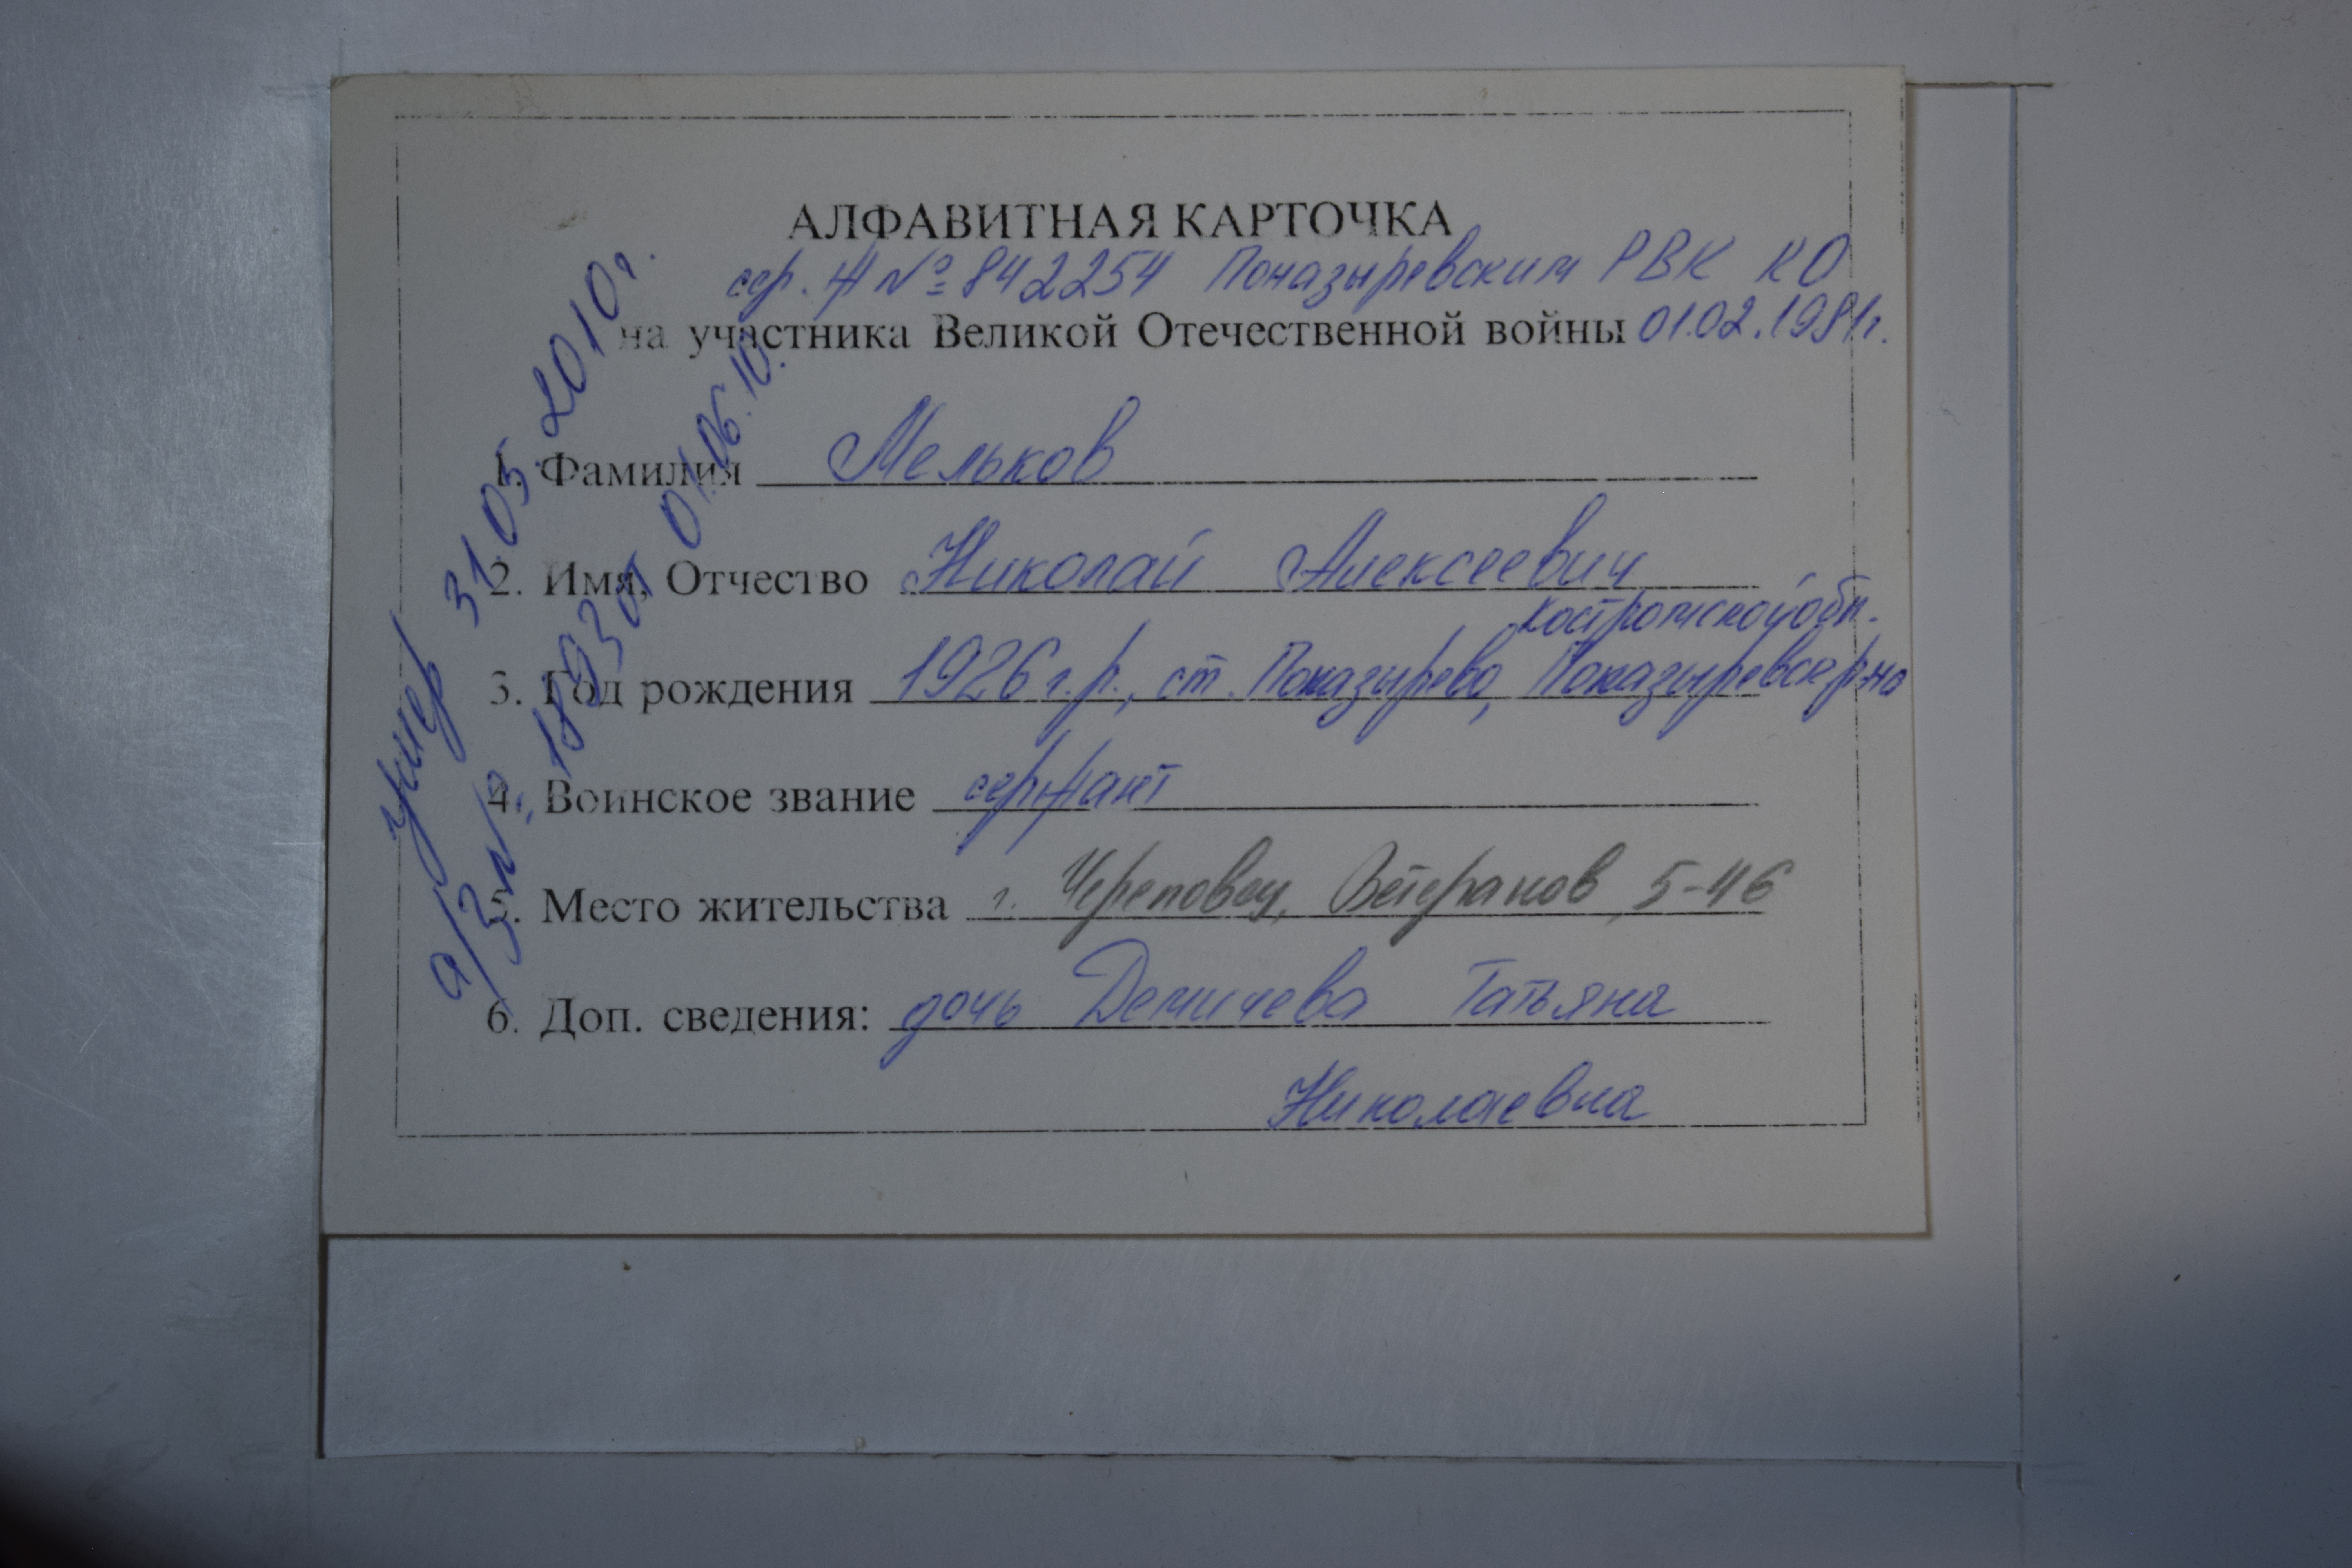 АЛФАВИТНАЯ КАРТОЧКА
сер. Ж № 842254 Поназыревским РВК КО
на участника Великой Отечественной войны 01.02.1981г.
1. Фамилия Мельков
2. Имя, Отчество Николай Алексеевич
Костромской обл.
3. Год рождения 1926 г.р., ст. Поназырево, Поназыревск р-на
4. Воинское звание сержант
5. Место жительства г. Череповец, Ветеранов, 5-46
6. Доп. сведения: дочь Демичева Татьяна
Николаевна
умер 31.05.2010г.
а/з № 1893 от 01.06.10.